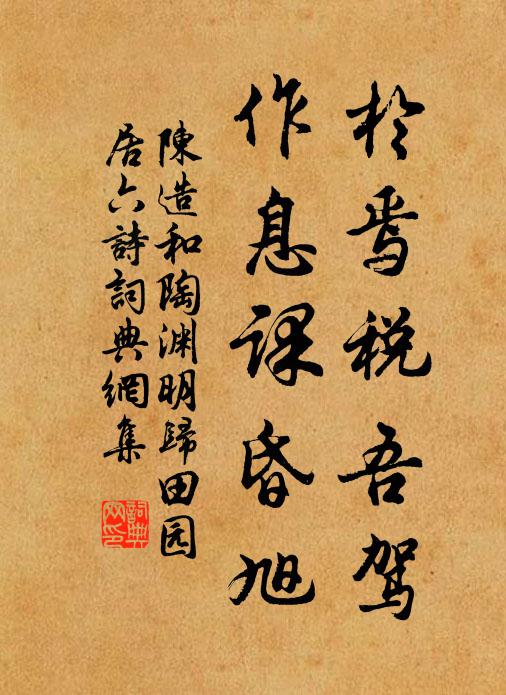 於焉税吾驾
作息課昏旭
陳造和陶渊明歸田园
居六詩詞典網集
詞典
网印